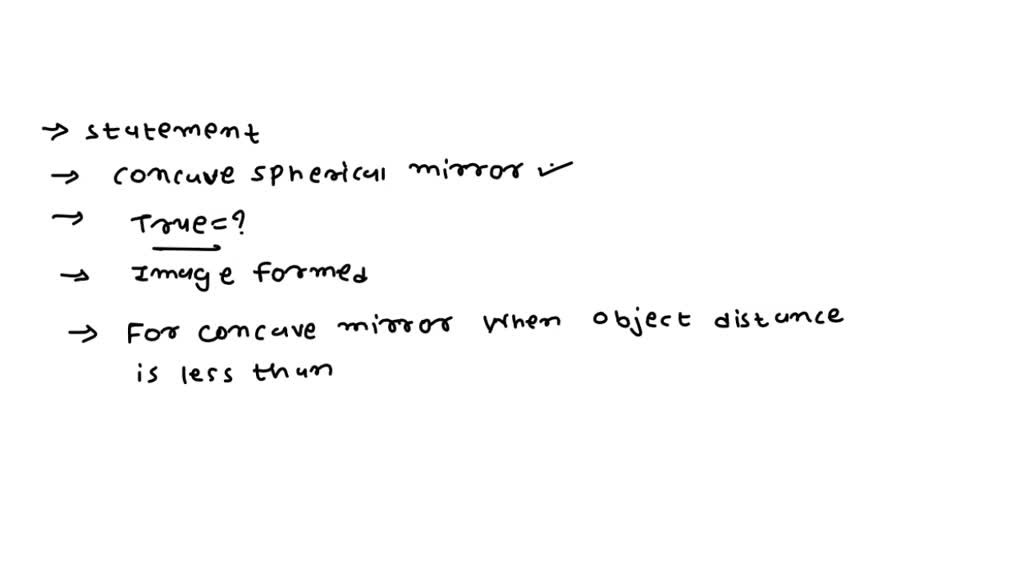 → statement
→ concave spherical mirror ✓
→ True=?
→ Image formed
→ For concave mirror when object distance
is less than